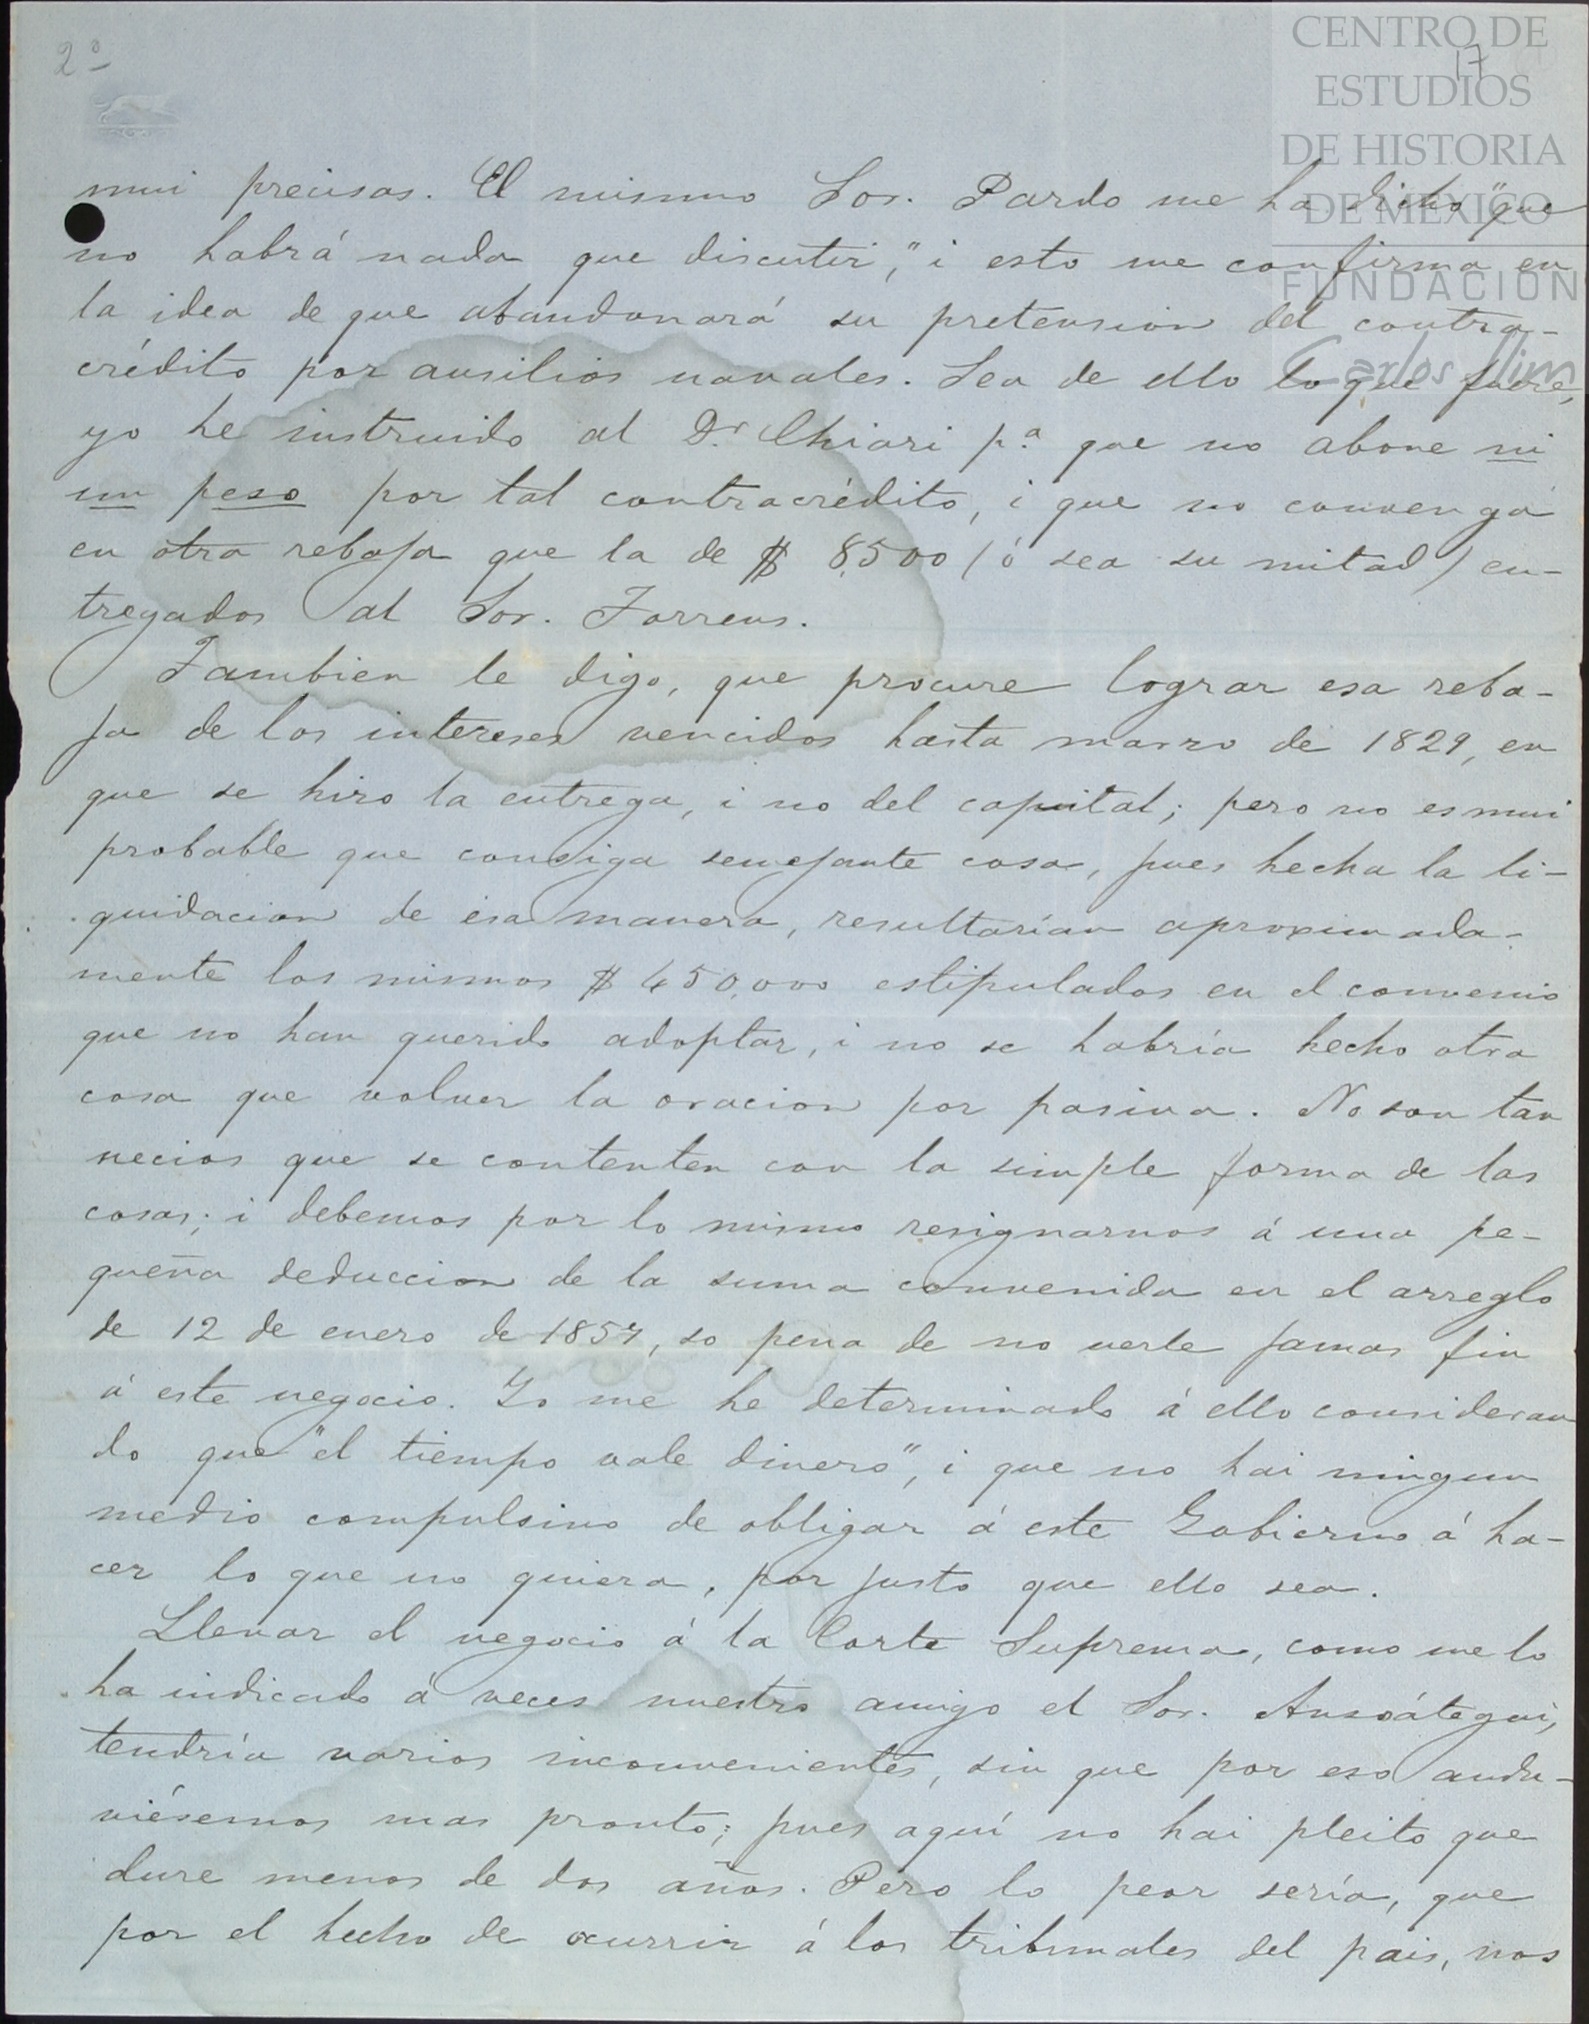 2º
17
CENTRO DE
ESTUDIOS
DE HISTORIA
DE MÉXICO
FUNDACIÓN
Carlos Slim
mui precisas. El mismo Sor. Pardo me ha dicho "que
no habrá nada que discutir," i esto me confirma en
la idea de que abandonará su pretension del contra-
crédito por ausilios navales. Sea de ello lo que fuere,
yo he instruido al Dr. Chiari pª que no abone ni
un peso por tal contracrédito, i que no convenga
en otra rebaja que la de $ 8,500 (ó sea su mitad) en-
tregados al Sor. Torrens.
Tambien le digo, que procure lograr esa reba-
ja de los intereses vencidos hasta marzo de 1829, en
que se hizo la entrega, i no del capital; pero no es mui
probable que consiga semejante cosa, pues hecha la li-
quidacion de esa manera, resultarían aproximada-
mente los mismos $ 450,000 estipulados en el convenio
que no han querido adoptar, i no se habría hecho otra
cosa que volver la oracion por pasiva. No son tan
necios que se contenten con la simple forma de las
cosas; i debemos por lo mismo resignarnos á una pe-
queña deduccion de la suma convenida en el arreglo
de 12 de enero de 1857, so pena de no verle jamas fin
á este negocio. Yo me he determinado á ello consideran
do que "el tiempo vale dinero", i que no hai ningun
medio compulsivo de obligar á este Gobierno á ha-
cer lo que no quiera, por justo que ello sea.
Llevar el negocio á la Corte Suprema, como me lo
ha indicado á veces nuestro amigo el Sor. Ansoátegui,
tendría varios inconvenientes, sin que por eso andu-
viésemos mas pronto; pues aquí no hai pleito que
dure menos de dos años. Pero lo peor sería, que
por el hecho de ocurrir á los tribunales del pais, nos